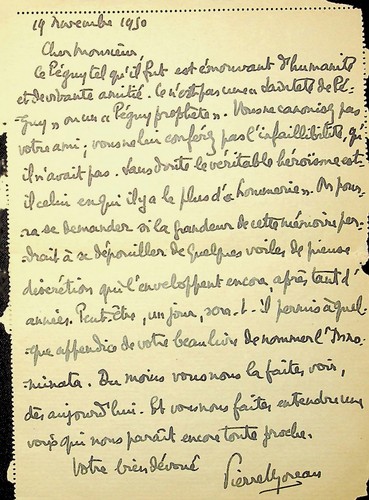 19 novembre 1950
Cher Monsieur
Ce Péguy tel qu'il fut est émouvant d'humanité
et de vibrante amitié. Ce n'est pas une « Sainteté de Pé-
guy » ou un « Péguy prophète ». Vous ne canonisez pas
votre ami, vous ne lui conférez pas l'infaillibilité, qu'
il n'avait pas. Sans doute le véritable héroïsme est-
il celui en qui il y a le plus d'« hommerie ». On pour-
ra se demander si la grandeur de cette mémoire per-
drait à se dépouiller de quelques voiles de pieuse
discrétion qui l'enveloppent encore, après tant d'
années. Peut-être, un jour, sera-t-il permis à quel-
que appendice de votre beau livre de nommer l'Inno-
minata. Du moins vous nous la faites voir,
dès aujourd'hui. Et vous nous faites entendre une
voix qui nous paraît encore toute proche.
Votre bien dévoué
Pierre Moreau